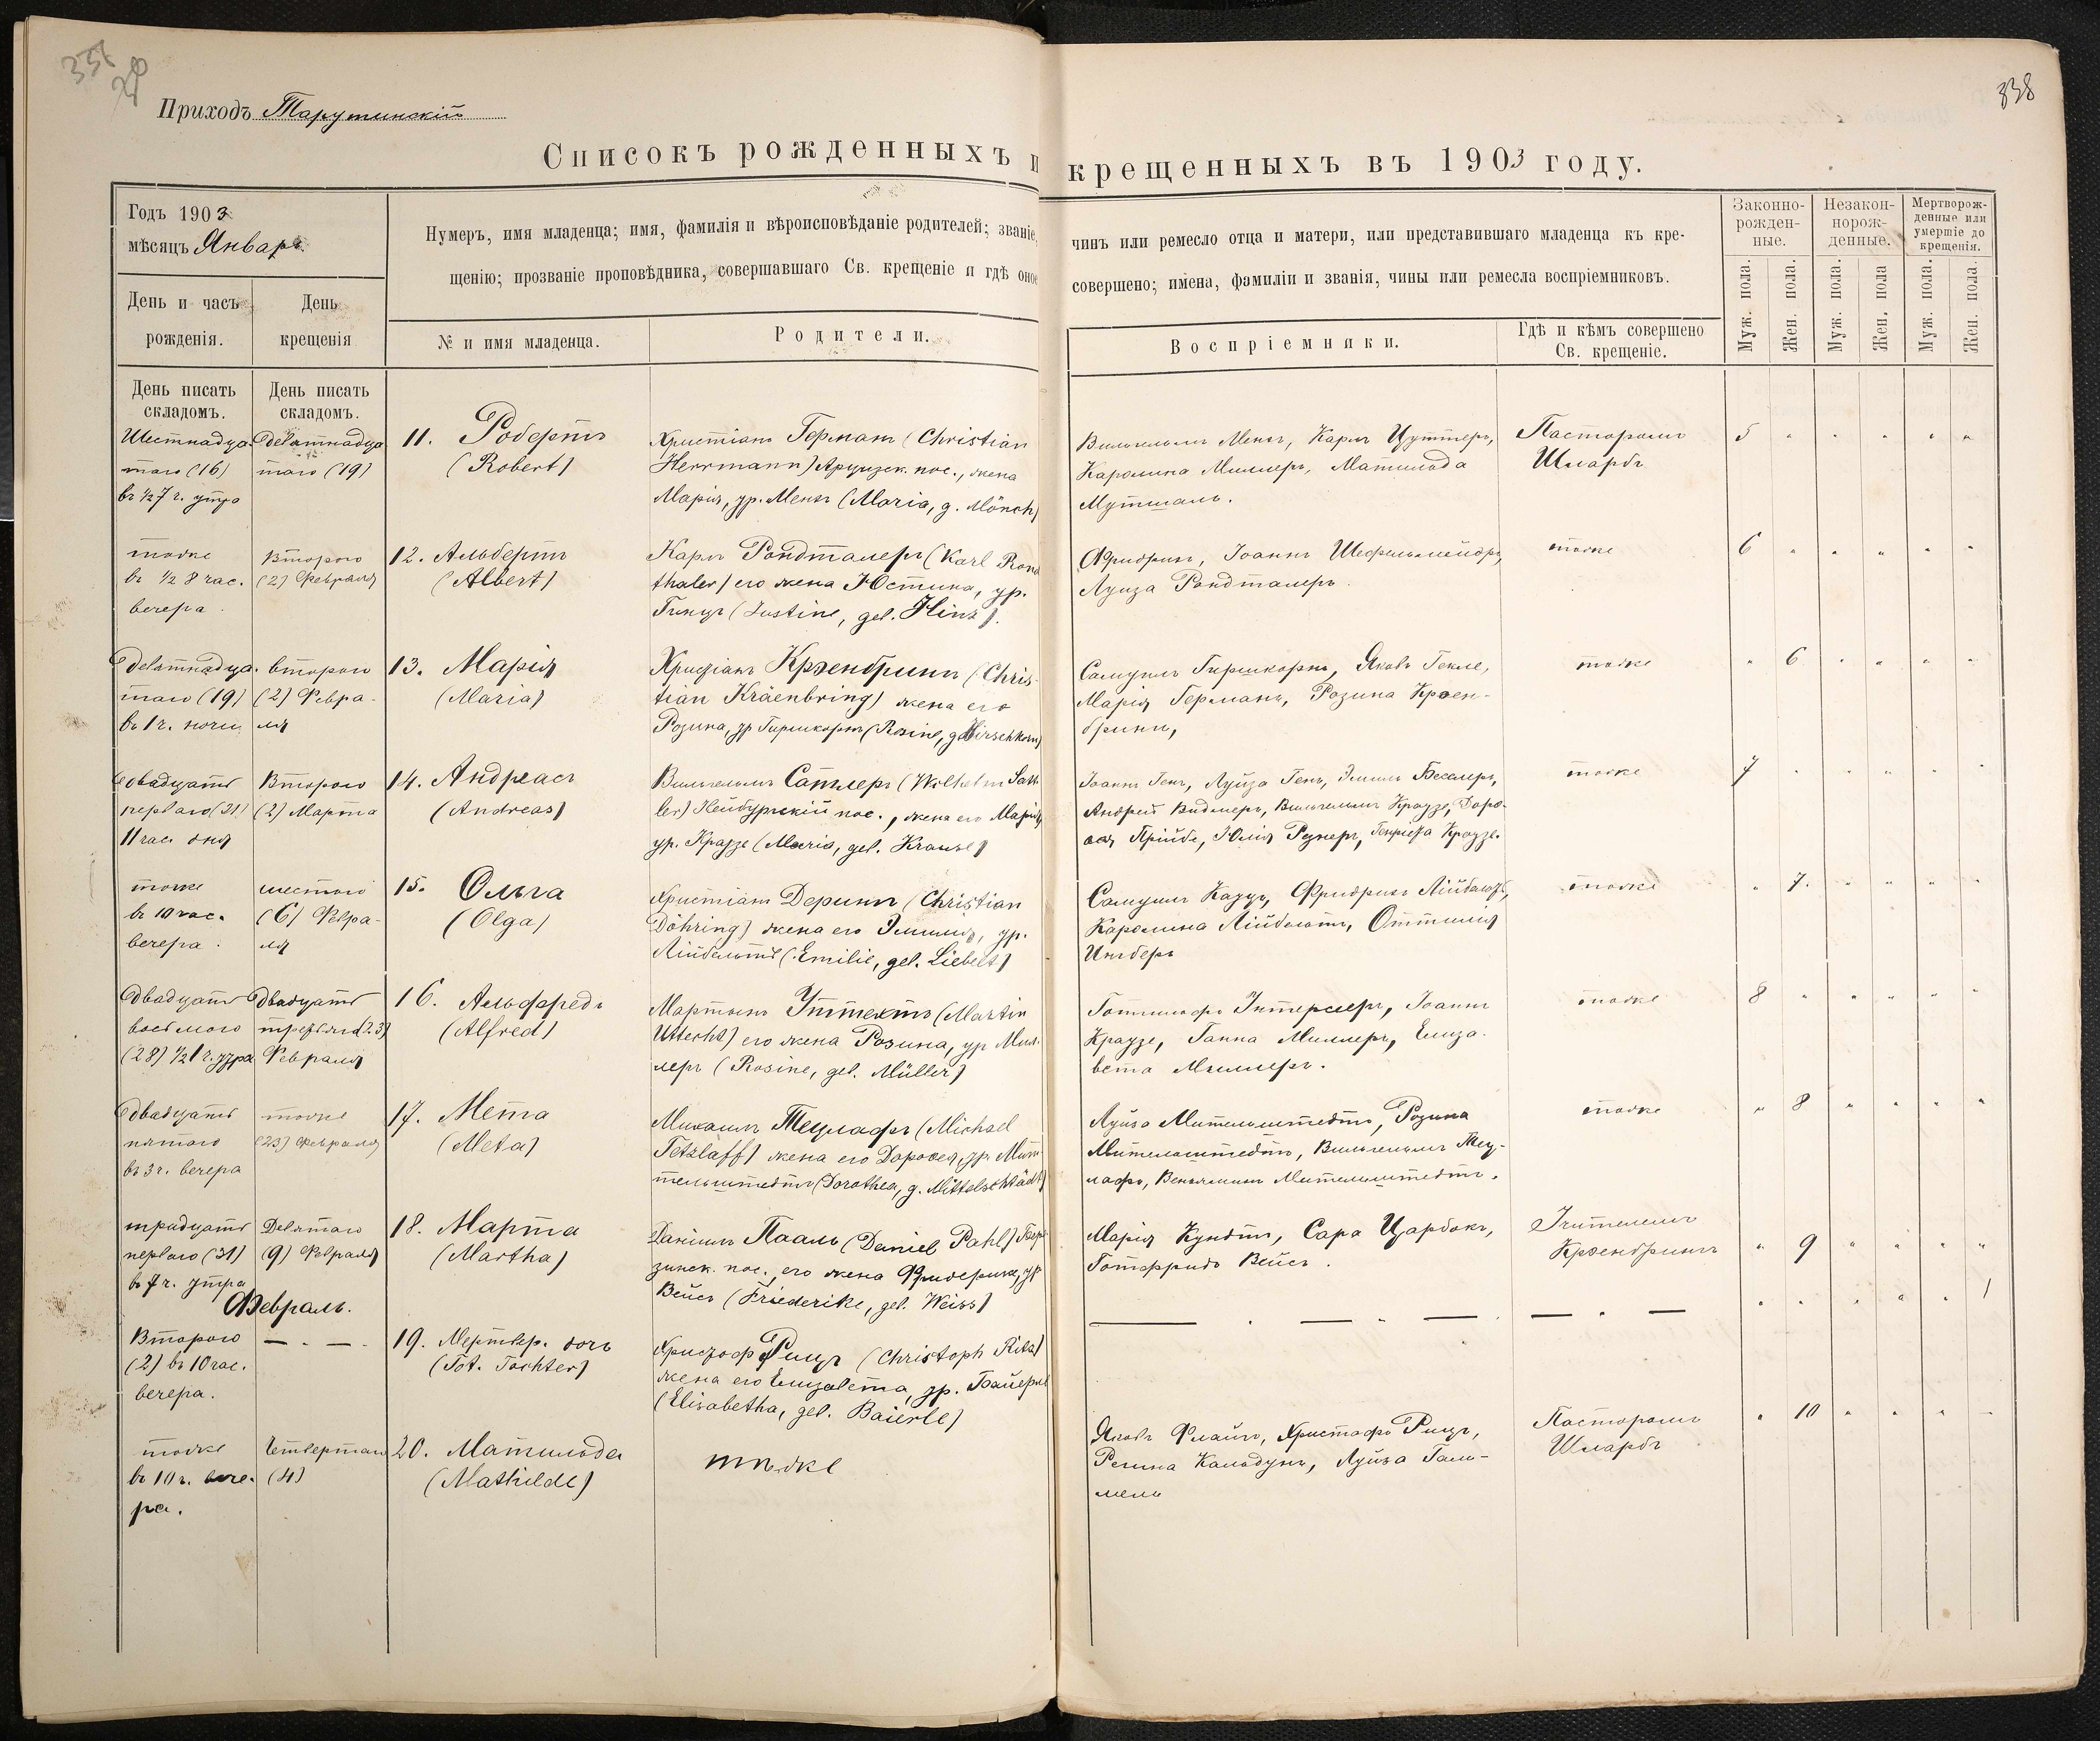 338
Приходъ Тарутинскій
Списокъ рожденныхъ и крещенныхъ въ 1903 году.
Годъ 1903
мѣсяцъ Январь.
Нумеръ, имя младенца; имя, фамилія и вѣроисповѣданіе родителей; званіе, чинъ или ремесло отца и матери, или представившаго младенца къ кре-
щенію; прозваніе проповѣдника, совершавшаго Св. крещеніе и гдѣ оное совершено; имена, фамиліи и званія, чины или ремесла воспріемниковъ.
Законно-
рожден-
ные.
Незакон-
норож-
денные.
Мертворож-
денные или
умершіе до
крещенія.
День и часъ
рожденія.
День
крещенія
№ и имя младенца.
Родители.
Воспріемники.
Гдѣ и кѣмъ совершено
Св. крещеніе.
Муж. пола.
Жен. пола.
Муж. пола.
Жен. пола
Муж. пола.
Жен. пола.
День писать
складомъ.
День писать
складомъ.
Шестнадца-
таго (16)
въ ½ 7 ч. утра
Девятнадца
таго (19)
11. Робертъ
(Robert)
Христіанъ Германъ (Christian
Herrmann) Арцизск. пос., жена
Марія, ур. Менхъ (Maria, g. Mönch)
Вильгельмъ Менхъ, Карлъ Цуттеръ,
Каролина Миллеръ, Матильда
Мутшаль.
Пасторомъ
Шларбъ
5 " " " " "
тоже
въ ½ 8 час.
вечера.
Второго
(2) Февраля
12. Альбертъ
(Albert)
Карлъ Рондталеръ (Karl Rond
thaler) его жена Юстина, ур.
Гинцъ (Justine, geb. Hinz).
Фридрихъ, Іоаннъ Шефельмейеръ,
Луиза Рондталеръ.
тоже
6 " " " " "
Девятнадца-
таго (19)
въ 1 ч. ночи
второго
(2) Февра-
ля
13. Марія
(Maria)
Христіанъ Крэенбрингъ (Chris-
tian Kräenbring) жена его
Розина, ур Гиршкорнъ (Rosine, g. Hirschkorn)
Самуилъ Гиршкорнъ, Яковъ Гекле,
Марія Германъ, Розина Крэен-
брингъ,
тоже
" 6 " " " "
Двадцать
перваго (21)
11 час. дня
Второго
(2) Марта
14. Андреасъ
(Andreas)
Вильгельмъ Сатлеръ (Wilhelm Satt
ler) Нейбургскій пос., жена его Марія,
ур. Краузе (Maria, geb. Krause)
Іоаннъ Генъ, Луиза Генъ, Эмиль Бесслеръ,
Андрей Видмеръ, Вильгельмъ Краузе, Доро-
ѳея Прійбе, Юлія Генріета Краузе.
тоже
7 " " " " "
тоже
въ 10 час.
вечера.
шестого
(6) Февра-
ля
15. Ольга
(Olga)
Христіанъ Дерингъ (Christian
Döhring) жена его Эмилія, ур.
Лійбельтъ (Emilie, geb. Liebelt)
Самуилъ Каузъ, Фридрихъ Лійбельтъ,
Каролина Лійбельтъ, Оттилія
Ингберъ
тоже
" 7. " " " "
Двадцать
восьмого
(28) ½ 1 ч. утра
Двадцать
третьяго (23)
Февраля
16. Альфредъ
(Alfred)
Мартынъ Уттехтъ (Martin
Uttecht) его жена Розина, ур Мил-
леръ (Rosine, geb. Müller)
Готлибъ Унтерзееръ, Іоаннъ
Краузе, Ганна Миллеръ, Елиза-
вета Миллеръ.
тоже
8 " " " " "
Двадцать
пятаго
въ 3 ч. вечера
тоже
(23) Февраля
17. Мета
(Meta)
Михаилъ Тецлафъ (Michael
Tetzlaff) жена его Доротея, ур. Мит-
тельштедтъ (Dorothea, g. Mittelschtädt)
Луиза Мительштедтъ, Розина
Мительштедтъ, Вильгельмъ Тец-
лафъ, Веньяминъ Мительштедтъ.
тоже
" 8 " " " "
тридцать
перваго (31)
въ 7 ч. утра
Девятаго
(9) Февраля
18. Марта
(Martha)
Даніилъ Пааль (Daniel Pahl) Бере-
зинск. пос., его жена Фридерика, ур
Вейсъ (Friederike, geb. Weiss)
Марія Кундтъ, Сара Царбокъ,
Готфридъ Вейсъ.
Учителемъ
Крэенбрингъ
" 9 " " " "
Февраль.
Второго
(2) въ 10 час.
вечера.
— . — .
19. Мертвор. дочь
(Tot. Tochter)
Христофъ Рицъ (Christoph Ritz)
жена его Елизавета, ур. Байерле
(Elisabetha, geb. Baierle)
— . — . — — . —
" " " " " 1
тоже
въ 10 ч. вече-
ра.
Четвертаго
(4)
20. Матильда
(Mathilde)
тоже
Яковъ Флайгъ, Христофъ Рицъ,
Регина Кальдунъ, Луиза Галь-
мель
Пасторомъ
Шларбъ
" 10 " " " "